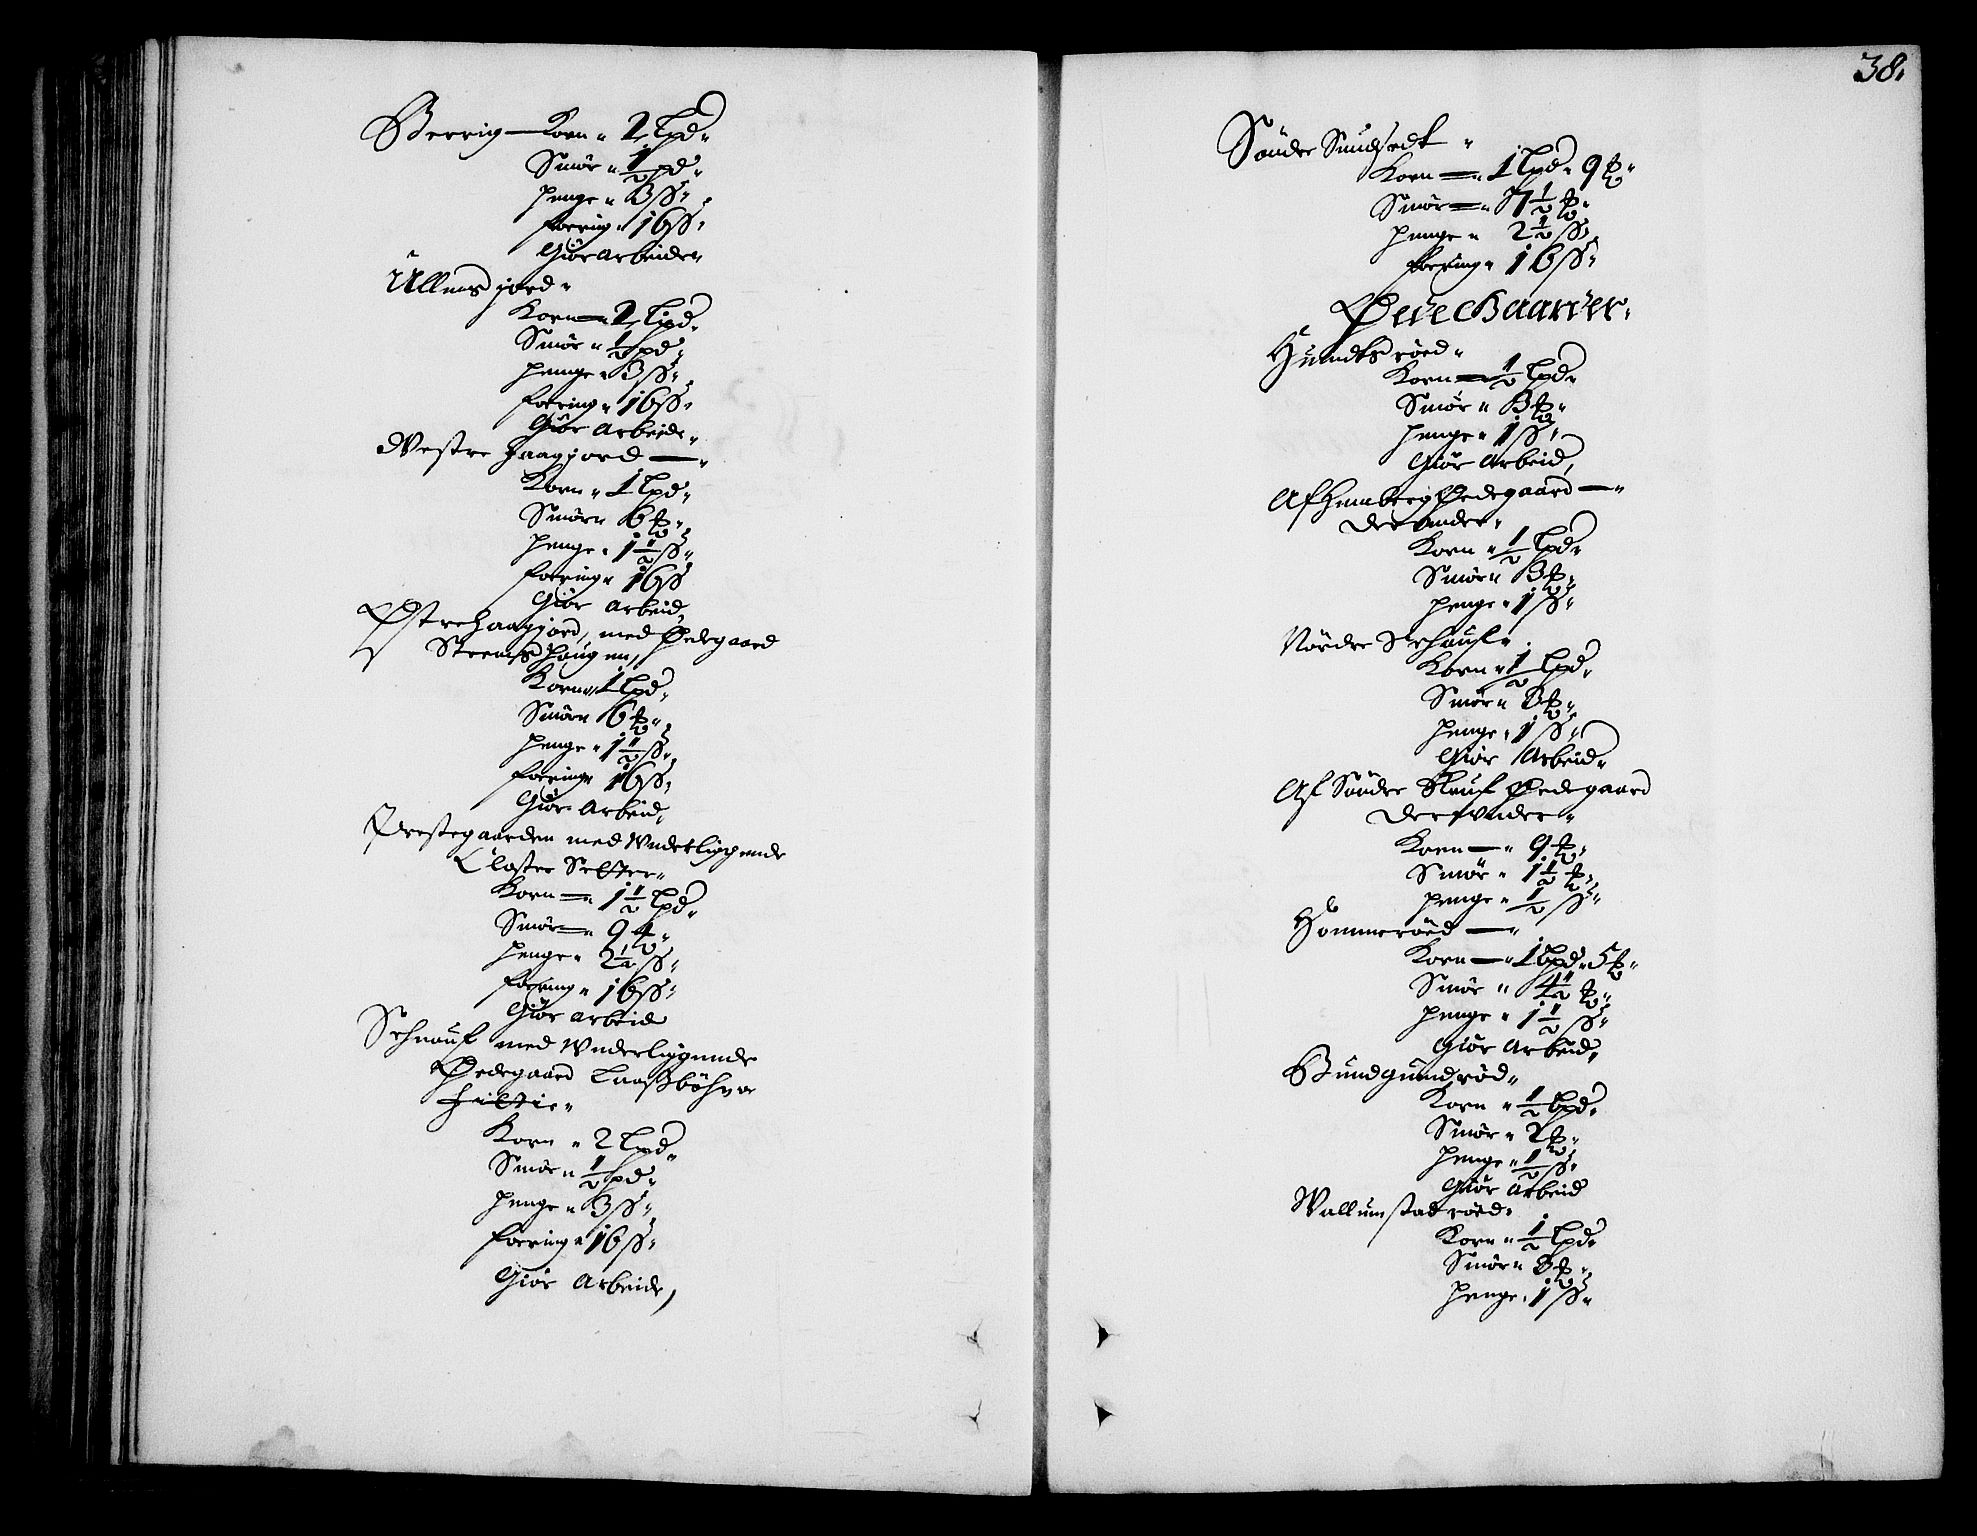 Berrig — Korn " 2 Lpd "
Smör " 1/2 pd "
penge " 3 ß "
foering " 16 ß "
Giör Arbeide "
Ullensjord "
Korn — 2 Lpd "
Smör " 1/2 pd "
penge " 3 ß "
foering " 16 ß "
Giör Arbeide "
Westre Haagjord — "
Korn " 1 Lpd "
Smör " 6 ℔ "
penge " 1 1/2 ß "
foering " 16 ß
Giör Arbeid,
Østre Haagjord, med Ødegaard
Steens Haugen,
Korn " 1 Lpd "
Smör " 6 ℔ "
penge " 1 1/2 ß "
foering " 16 ß "
Giör Arbeid,
Prestegaarden med Underliggende
Closter Setter "
Korn — " 1 1/2 Lpd "
Smör — " 9 ℔ "
penge " 2 1/4 ß "
foering " 16 ß "
Giör Arbeid
med Underliggende
Ødegaard
Korn " 2 Lpd "
Smör " 1/2 pd "
penge " 3 ß "
foering " 16 ß "
Giör Arbeide,
38.
Söndre
Korn — " 1 Lpd " 9 ℔ "
Smör — " 7 1/2 ℔ "
penge " 2 1/2 ß "
foering " 16 ß "
Ødegaarder.
Hundsröed "
Korn — 1/2 Lpd "
Smör " 3 ℔ "
penge " 1 ß "
Giör Arbeid,
Af Hunberg Ødegaard — "
Derunder "
Korn " 1/2 Lpd "
Smör " 3 ℔ "
penge " 1 ß "
Nördre
Korn " 1/2 Lpd "
Smör " 3 ℔ "
penge " 1 ß "
Giör Arbeid "
Af Söndre Ødegaard
Derunder "
Korn — " 9 ℔ "
Smör " 1 1/2 ℔ "
penge " 1/2 ß "
Hommeröed — "
Korn — " 1 Lpd " 5 ℔ "
Smör " 4 1/2 ℔ "
penge " 1 1/2 ß "
Giör Arbeid,
Gundgundröd "
Korn " 1/2 Lpd "
Smör " 2 ℔ "
penge " 1/2 ß "
Giör Arbeid
Wallumstadröed "
Korn " 1/2 Lpd "
Smör " 3 ℔ "
penge " 1 ß "